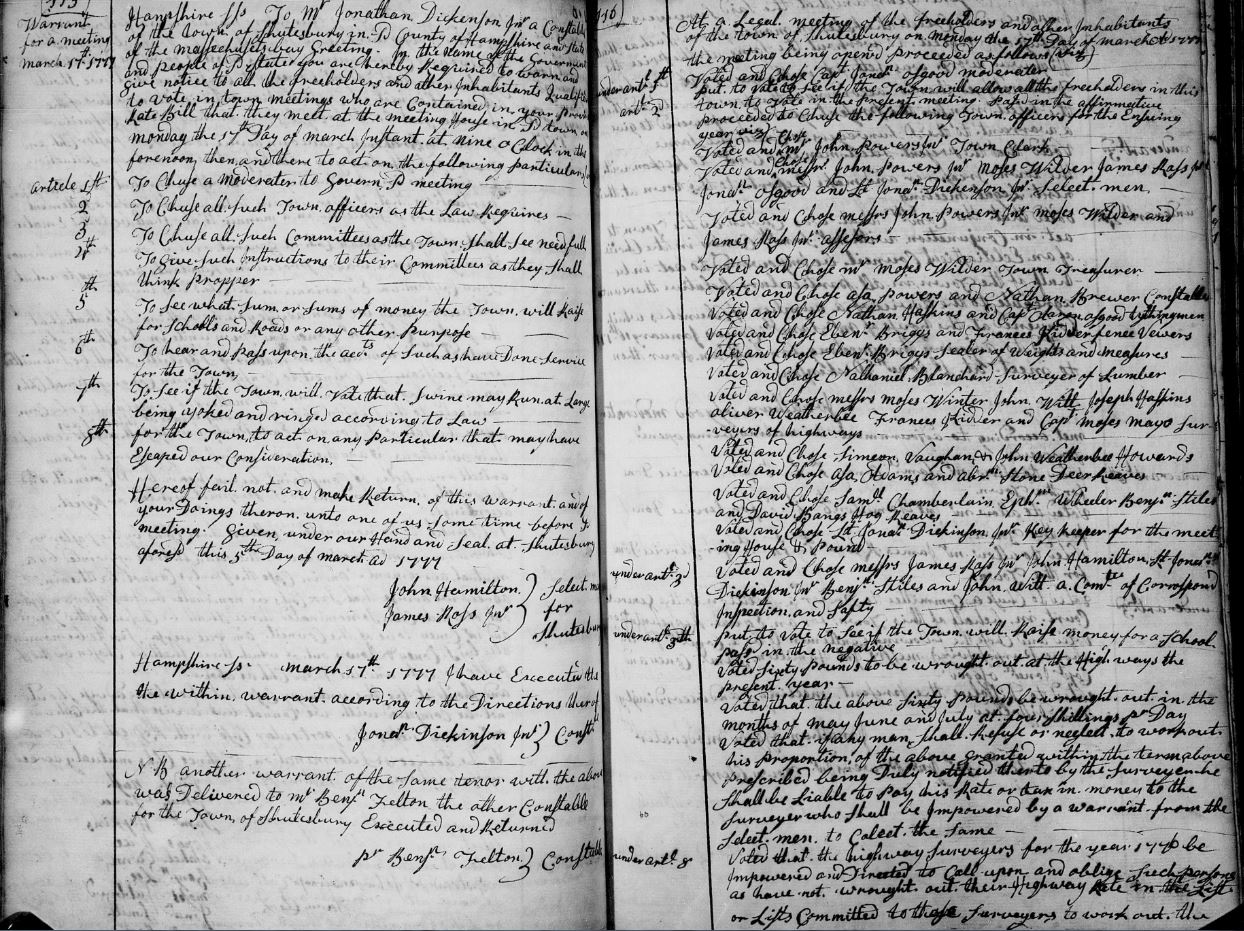 115
Warrant
for a meeting
march 17th 1777
Hampshire ss To Mr Jonathan Dickenson Jnr a Constable
of the Town of Shutesbury in sd County of Hampshire and State
of the massachusets bay Greeting. In the Name of the Goverment
and people of sd State you are hereby Required to warn and
Give notice to all the freeholders and other Inhabitants Qualified
to vote in town meetings who are Contained in your Province
Late Bill that they meet at the meeting House in sd town on
monday the 17th Day of march Instant at Nine o Clock in the
forenoon then and there to act on the following particulars
article 1st To Chuse a moderater to Govern sd meeting
2 To Chuse all such Town officers as the Law Requires
3 To Chuse all such Committees as the Town shall see needfull
4th To Give such Instructions to their Committees as they shall
think Propper
5th To see what sum or sums of money the Town will Raise
for Scholls and Roads or any other Purpose
6th To hear and Pass upon the accts of such as have Done service
for the Town
7th To see if the Town will Vote that Swine may Run at Large
being yoked and ringed according to Law
8th for the Town to act on any Particular that may have
Escaped our Consideration
Hereof fail not and make Return of this warrant and of
your Doings theron unto one of us some time before sd
meeting. Given under our Hand and Seal at Shutesbury
aforesd this 5th Day of march ad 1777
John Hamilton
James Ross Jnr
Select men
for
Shutesbury
Hampshire ss march 17th 1777 I have Executed the
the within warrant according to the Directions therof
Jonan Dickinson Jnr Const
NB another warrant of the same tenor with the above
was Delivered to mr Benjn Felton the other Constable
for the Town of Shutesbury Executed and Returned
pr Benjn Felton Constable
116
At a Legal meeting of the freeholders and other Inhabitants
of the town of Shutesbury on monday the 17th Day of march AD 1777
the meeting being opend proceeded as follows (viz)
under artl 1st Voted and Chose Capt Jonan osgood moderater
artl 2d put to Vote to see if the Town will allow all the freeholders in this
town to vote in the present meeting Pass in the affirmative
proceeded to Chuse the following Town officers for the Ensuing
year viz
Voted and Chose mr John Powers Jnr Town Clark
Voted and Chose messrs John Powers Jnr Moses Wilder James Ross Jnr
Jonan osgood and Lt Jonan Dickenson Jnr Select men
Voted and Chose messrs John Powers Jnr moses Wilder and
James Ross Jnr assessors
Voted and Chose mr Moses Wilder Town Treasurer
Voted and Chose asa Powers and Nathan Brewer Constables
Voted and Chose Nathan Haskins and Cap Aaron osgood Tithingmen
Voted and Chose Ebenr Briggs and Frances Kidder fence Vewers
Voted and Chose Ebenr Briggs Sealer of Weights and measures
Voted and Chose Nathaniel Blanchard Surveyer of Lumber
Voted and Chose messrs moses Winter John Witt Joseph Haskins
oliver Weatherbee Frances Kidder and Capt moses mayo sur-
-veyers of highways
Voted and Chose Simeon Vaughan & John Weatherbee Howards
Voted and Chose Asa Adams and abrm Stone Deer Reaves
Voted and Chose Samll Chamberlain Ephm Wheeler Benjn Stiles
and David Bangs Hog Reaves
Voted and Chose Lt Jonan Dickinson Jnr Key keeper for the meet
-ing House & Pound
under artl 3d Voted and Chose messrs James Ross Jnr John Hamilton Lt Jonan
Dickenson Jnr Benjn Stiles and John Witt a Comtee of Correspond
Inspection and Safty
under artl 5th put to Vote to see if the Town will Raise money for a School
pass in the negative
Voted sixty Pounds to be wrought out at the High ways the
present year
Voted that the above sixty Pounds be wrought out in the
months of may June and July at four shillings pr Day
Voted that if any man shall Refuse or neglect to work out
his proportion of the above granted within the term above
prescribed being Duly notified therto by the surveyer he
shall be Liable to Pay his Rate or tax in money to the
surveyer who shall be Impowered by a warrant from the
select men to Colect the same
under artl 8 Voted that the highway Surveyers for the year 1776 be
Impowered and Directed to Call upon and oblige such persons
as have not wrought out their Highway Rate in the List
or Lists Committed to those Surveyers to work out the